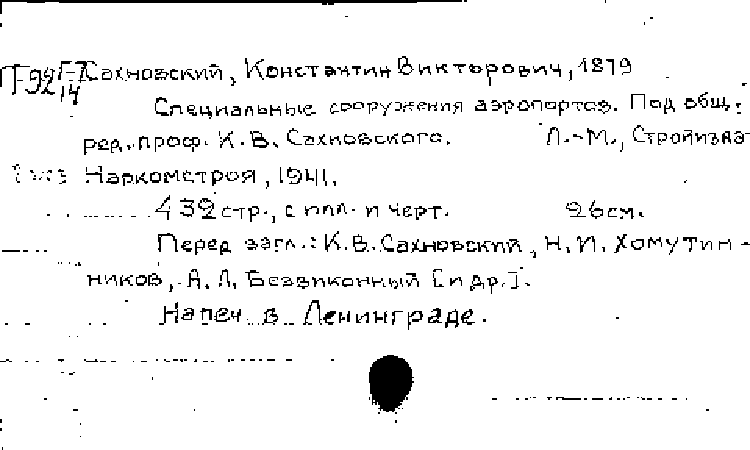 Сахновский, Константин Викторович, 1879
Специальные сооружения аэропортов. Под общ.
ред. проф. К.В. Сахновского. Л.-М., Стройиздат
Наркомстроя, 1941.
432 стр., с илл. и черт. 26 см.
Перед загл.: К.В. Сахновский, Н.И. Хомутин-
ников, А.Л. Безвиконный [и др.].
Напеч. в Ленинграде.